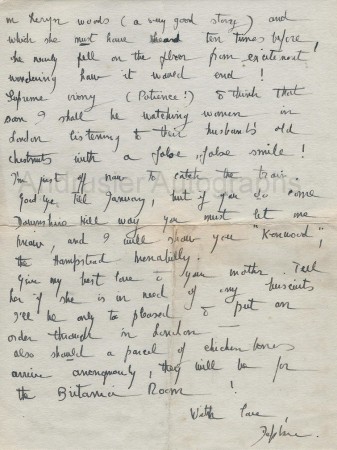 in Heryn woods (a very good story) and
which she must have heard ten times before,
she nearly fell on the floor from excitement,
wondering how it would end!
Supreme irony (Patience!) to think that
soon I shall be watching women in
London listening to their husband's old
chestnuts with a false, false smile!
I'm just off now to catch the train.
Good-bye till January, but if you do come
Downshire Hill way you must let me
know, and I will show you "Kenwood",
the Hampstead Menabilly.
Give my best love to your mother. Tell
her if she is in need of any
I'll be only to pleased to put an
order through in London
also should a parcel of chicken bones
arrive anonymously, they will be for
the Britannia Room!
With love,
Daphne